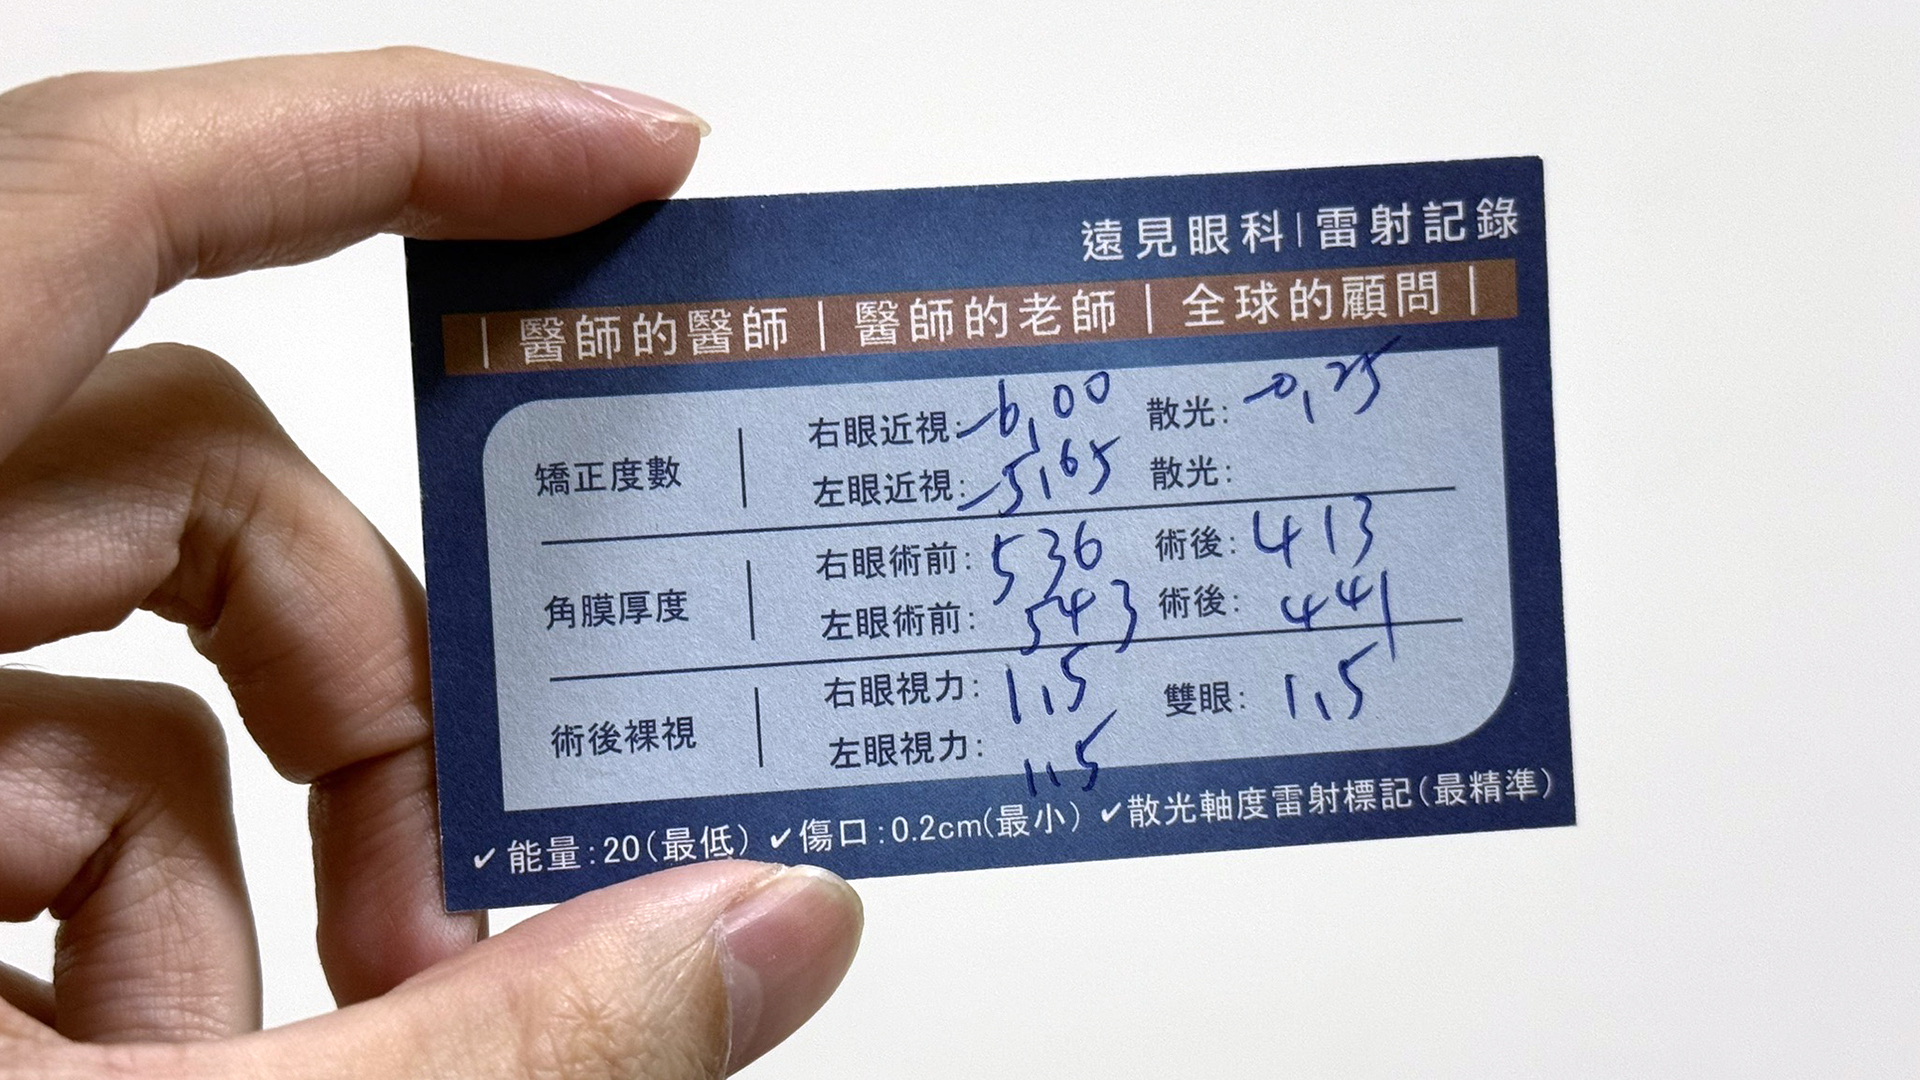 遠見眼科|雷射記錄
| 醫師的醫師 | 醫師的老師 | 全球的顧問 |
矯正度數 右眼近視:-6,00 散光:-0,25
左眼近視:-5,65 散光:
角膜厚度 右眼術前:536 術後:413
左眼術前:543 術後:441
術後裸視 右眼視力:1,5 雙眼:1,5
左眼視力:1,5
✔能量:20(最低) ✔傷口:0.2cm(最小) ✔散光軸度雷射標記(最精準)